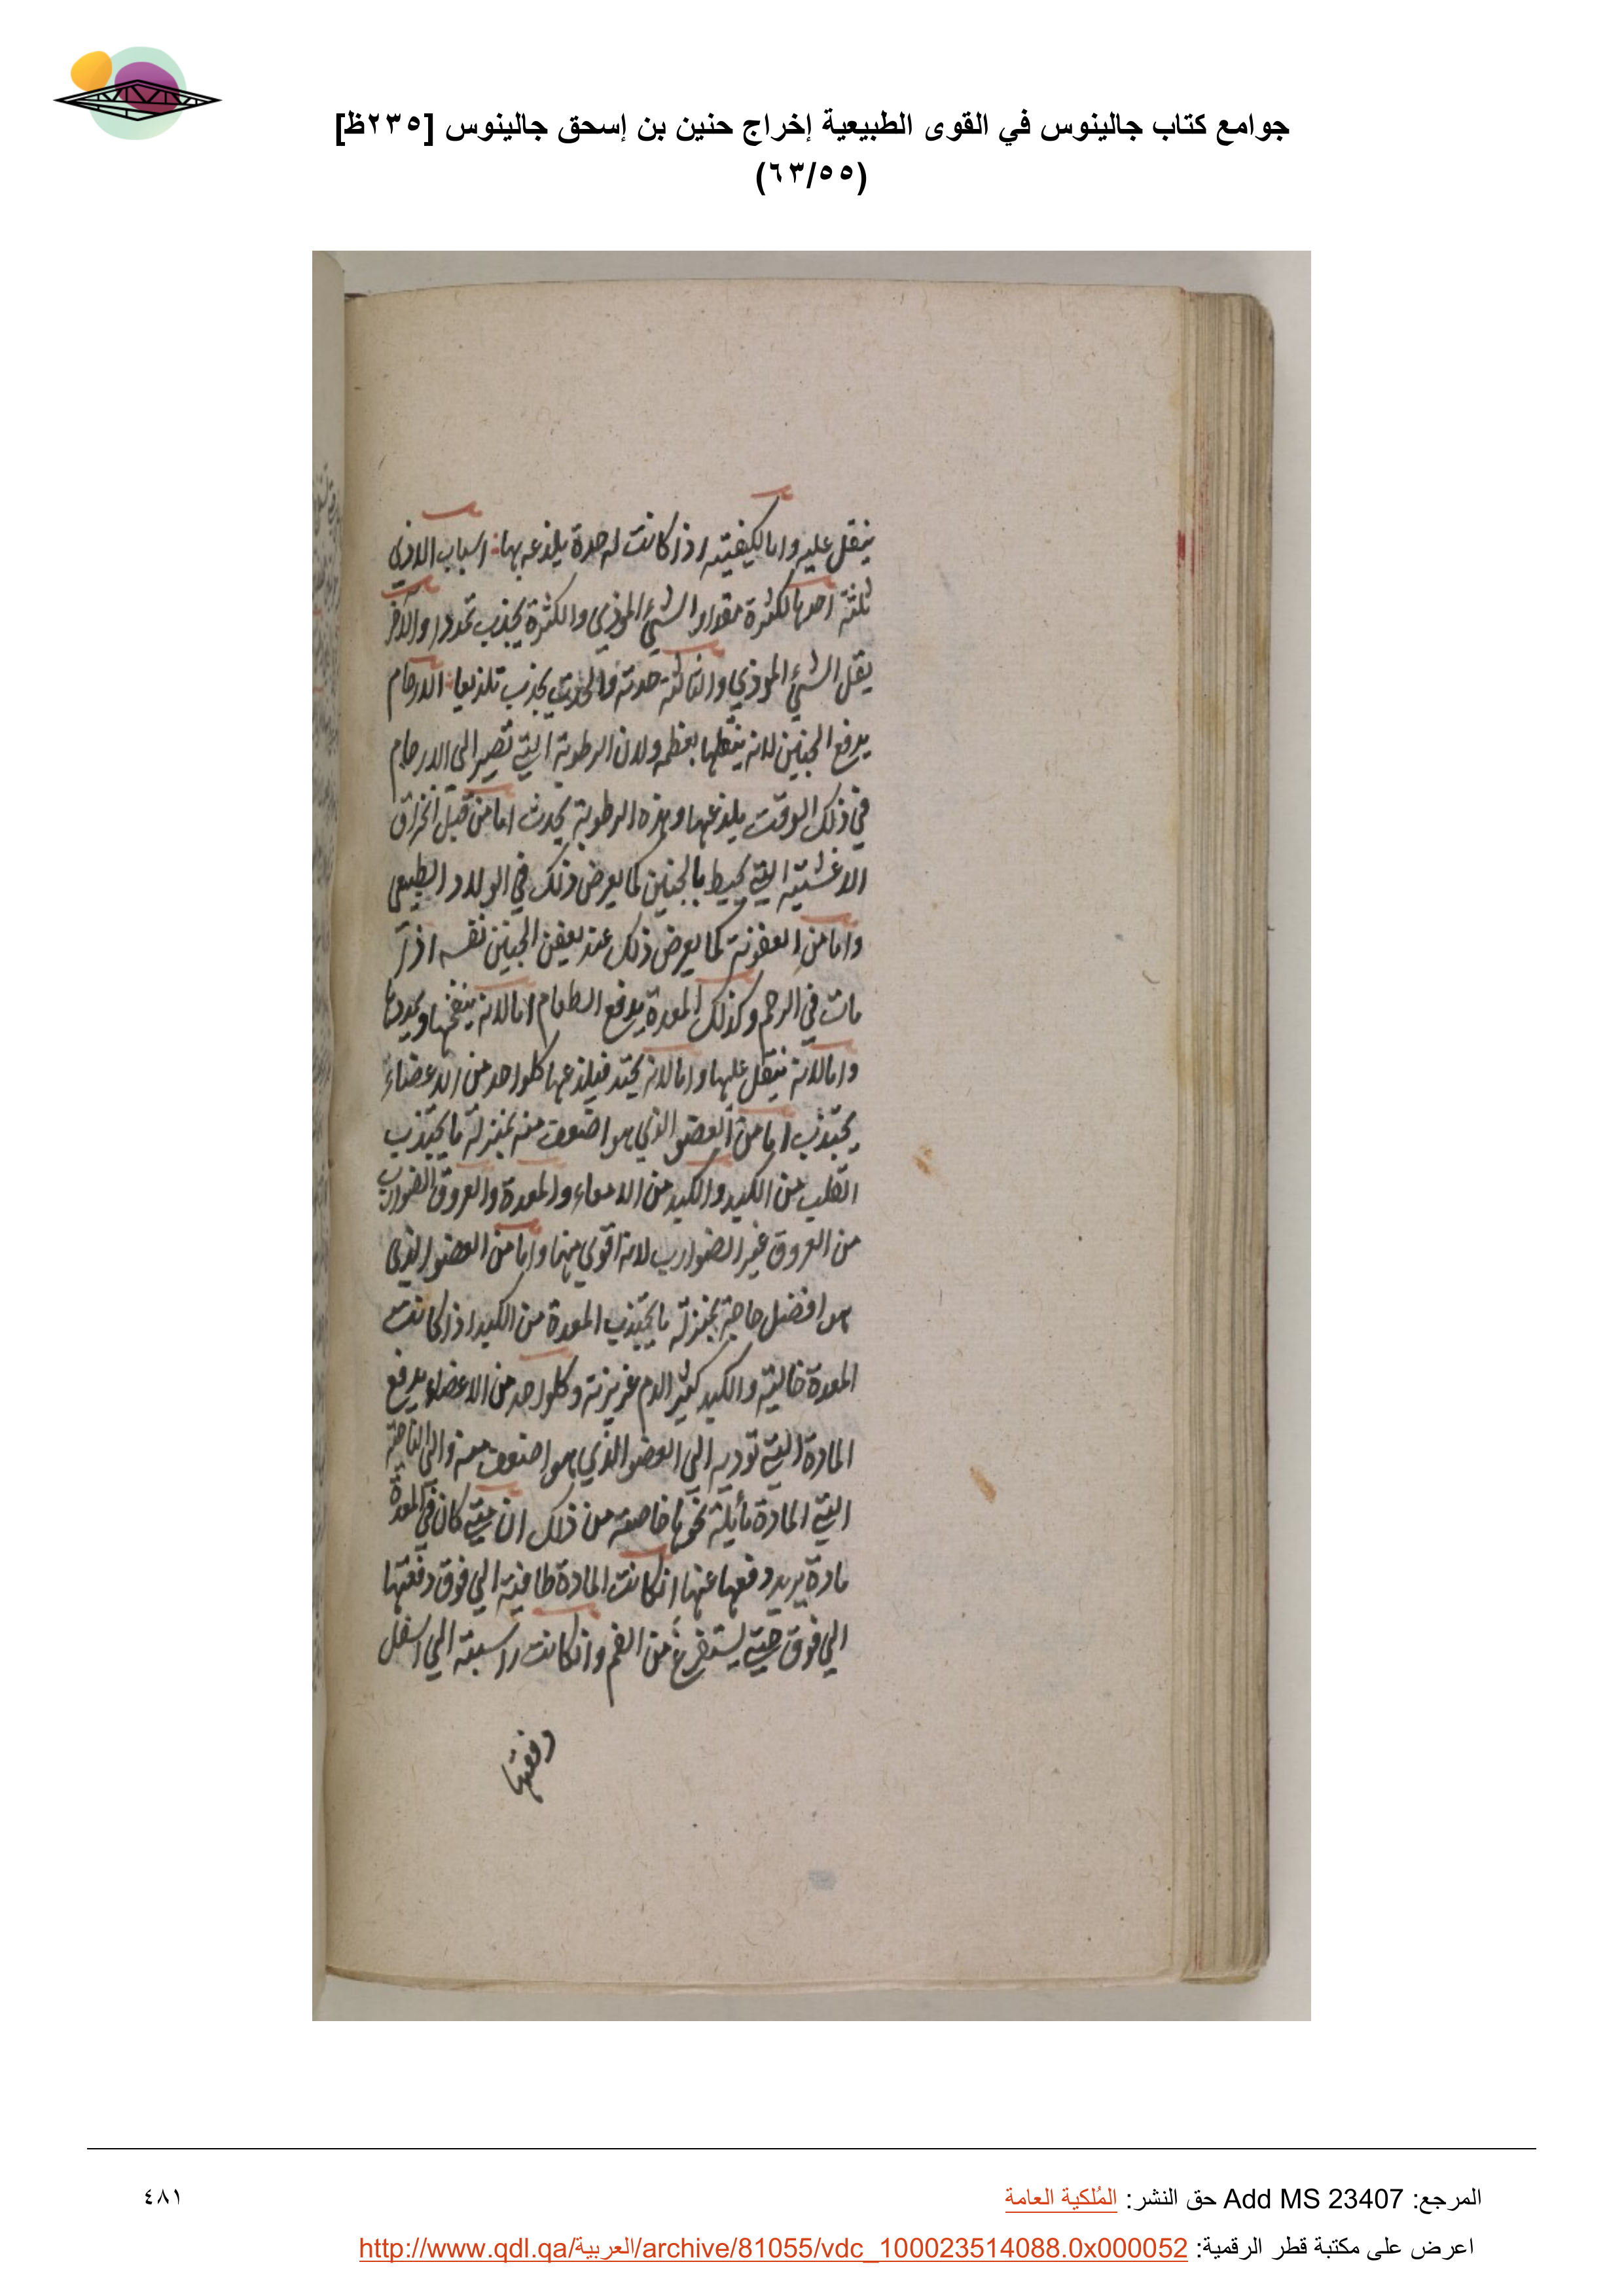 جوامع كتاب جالينوس في القوى الطبيعية إخراج حنين بن إسحق جالينوس [٢٣٥ظ]
(٦٣/٥٥)
يثقل عليه واما لكيفيته اذا كانت له حدة يلذعه بها اسباب الاذى
ثلثة احدها لكثرة مقدار الشيء الموذي والكثرة يجذب تمددا والاخر
يقل الشيء الموذي والثالثة حدته والحدة يجذب تلذيعا الارحام
يدفع الجنين لانه يثقلها بعظمه ولان الرطوبة التي تصير الى الارحام
في ذلك الوقت يلذعها وهذه الرطوبة يحدث اما من قبل انخراق
الاغشية التي يحيط بالجنين كما يعرض ذلك في الولاد الطبيعي
واما من العفونة كما يعرض ذلك عند يعفن الجنين نفسه اذا
مات في الرحم وكذلك المعدة يدفع الطعام اما لانه ينفخها ويمددها
واما لانه يثقل عليها واما لانه يحتد فيلذعها كلواحد من الاعضاء
يجتذب اما من العضو الذي هو اضعف منه بمنزلة ما يجتذب
القلب من الكبد والكبد من الامعاء والمعدة والعروق الضوارب
من العروق غير الضوارب لانه اقوي منها واما من العضو الذي
هو افضل حاجة بمنزلة ما يجتذب المعدة من الكبد اذا كانت
المعدة خالية والكبد كثير الدم غزيزته وكلواحد من الاعضاء يدفع
المادة التي توديه الي العضو الذي هو اضعف منه والي الناحية
التي المادة مايلة نحوها خاصة من ذلك ان متي كان في المعدة
مادة يريد دفعها عنها انكانت المادة طافية الي فوق دفعتها
الي فوق حتي يستفرغ من الفم وانكانت راسبة الي اسفل
دفعتها
المرجع: Add MS 23407 حق النشر: المُلكية العامة
٤٨١
اعرض على مكتبة قطر الرقمية: http://www.qdl.qa/العربية/archive/81055/vdc_100023514088.0x000052